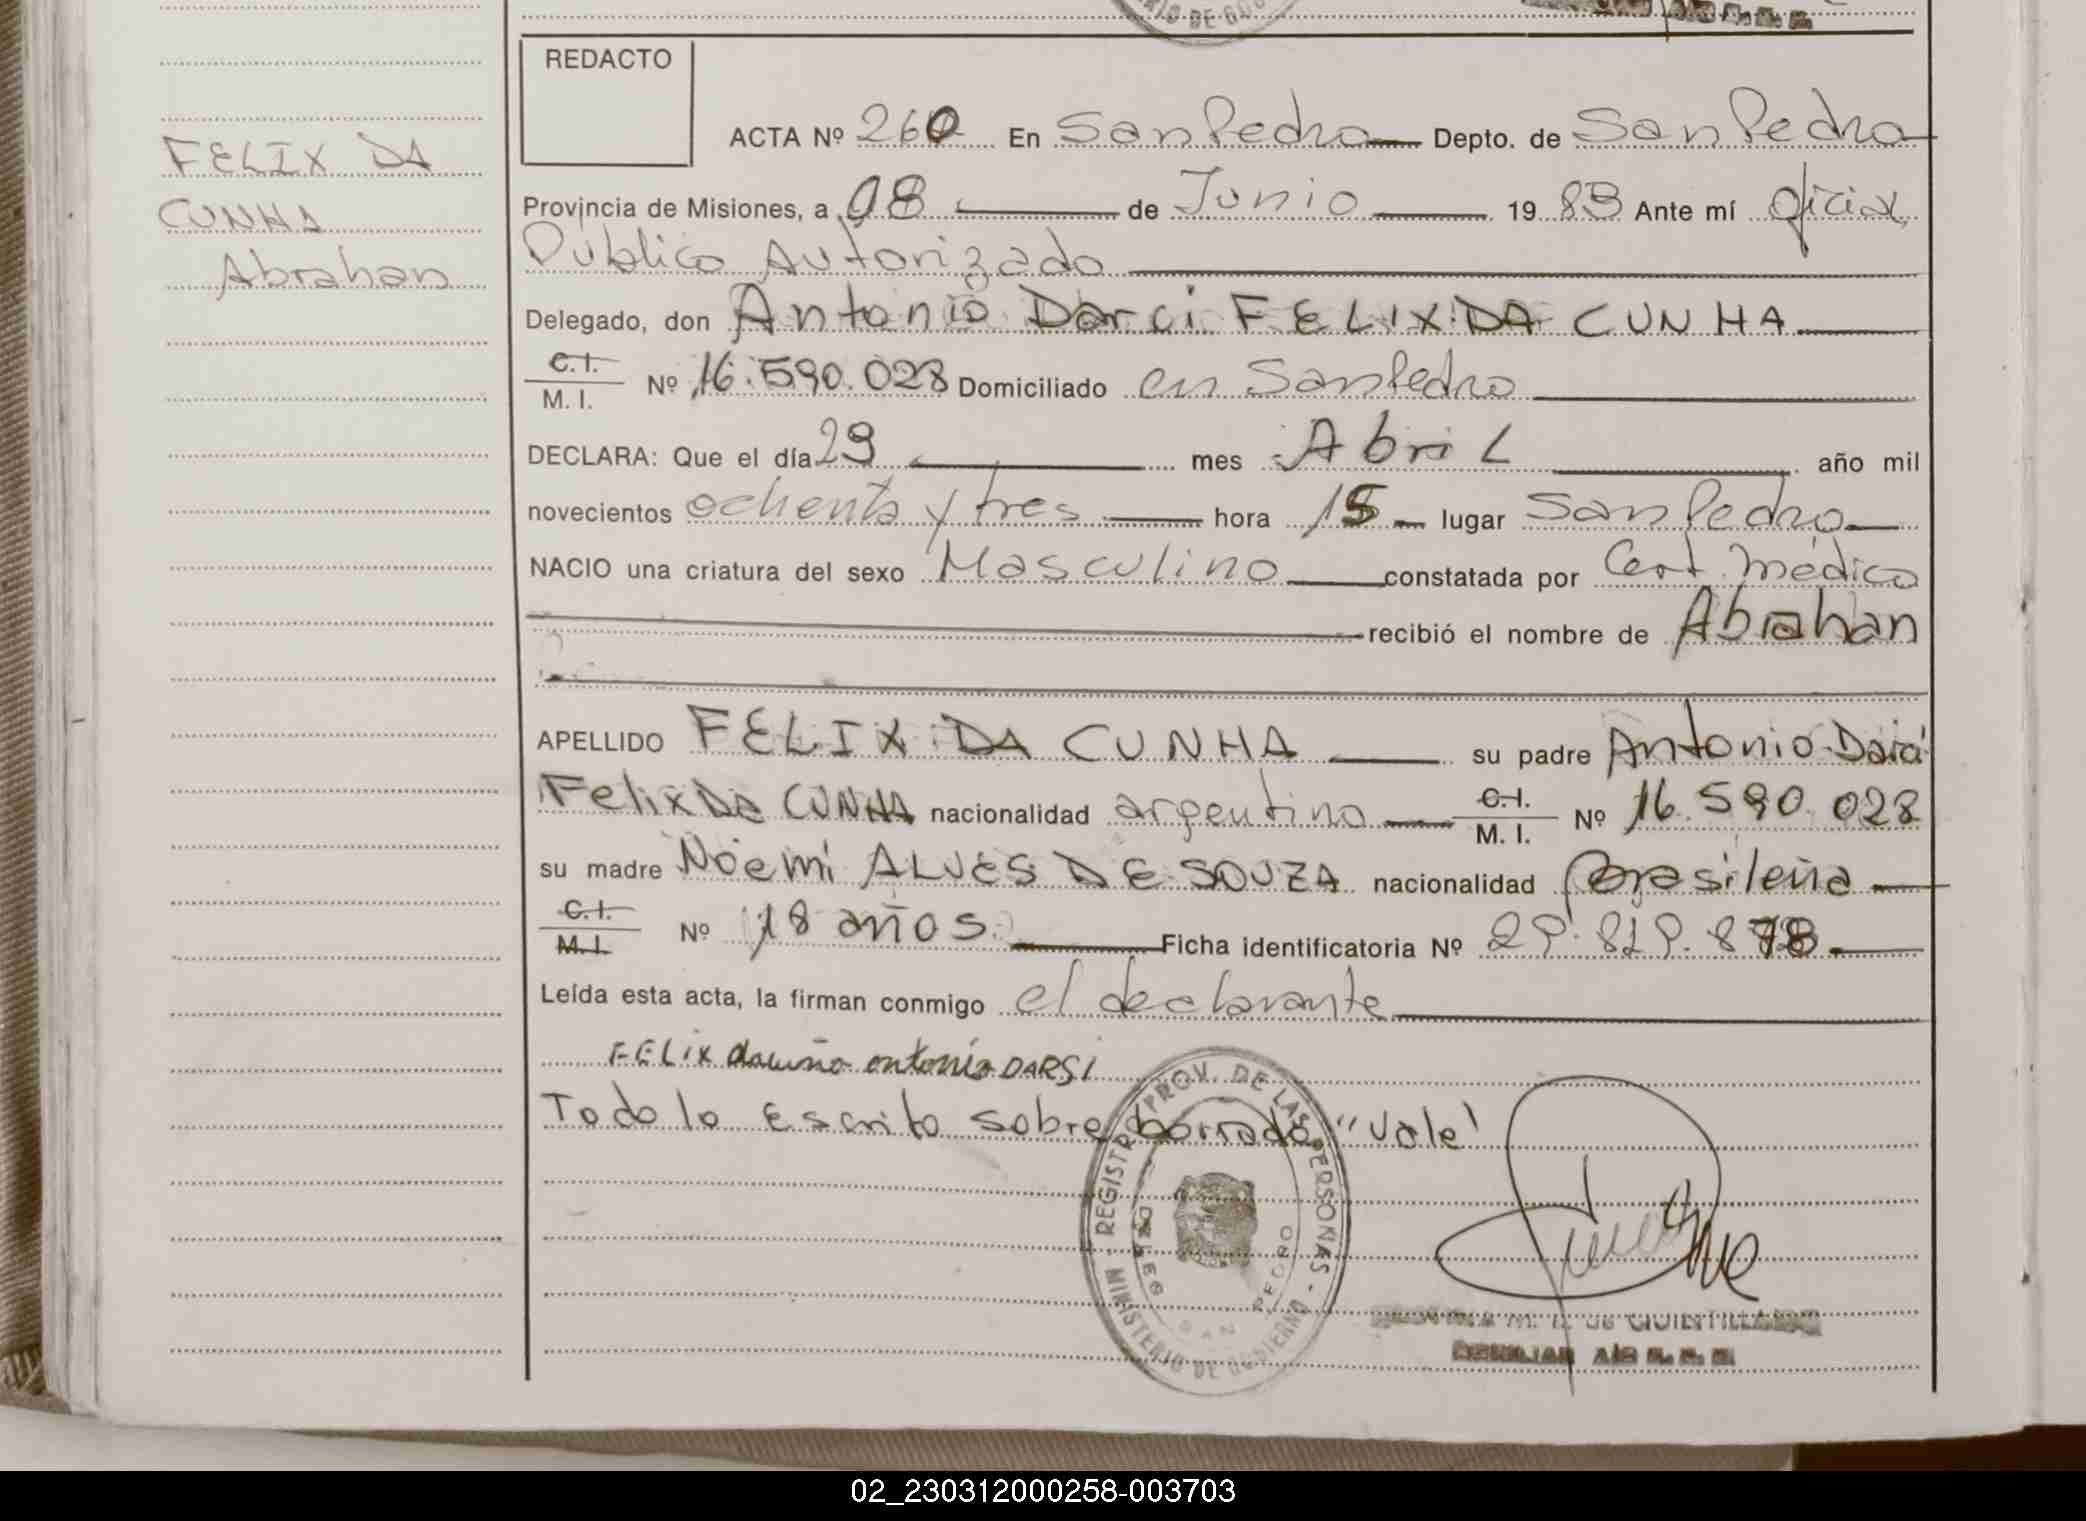 REDACTO
ACTA Nº 260 En San Pedro Depto. de San Pedro
FELIX DA
CUNHA
Abrahan
Provincia de Misiones, a 08 de Junio 1983 Ante mí oficial
Público Autorizado
Delegado, don Antonio Darci FELIX DA CUNHA
C.I.
M.I. Nº 16.590.028 Domiciliado en San Pedro
DECLARA: Que el día 29 mes Abril año mil
novecientos ochenta y tres hora 15 lugar San Pedro
NACIO una criatura del sexo Masculino constatada por Cert. médico
recibió el nombre de Abrahan
APELLIDO FELIX DA CUNHA su padre Antonio Darci
Felix DA CUNHA nacionalidad argentino C.I. M.I. Nº 16.590.028
su madre Noemi ALVES DE SOUZA nacionalidad Brasileña
C.I.
M.I. Nº 18 años. Ficha identificatoria Nº 29.819.878
Leída esta acta, la firman conmigo el declarante
FELIX dacuña antonio DARSI
Todo lo Escrito sobre borrado "Vale"
REGISTRO PROV. DE LAS PERSONAS - MINISTERIO DE GOBIERNO
SAN PEDRO
DE QUINTILLAN
02_230312000258-003703